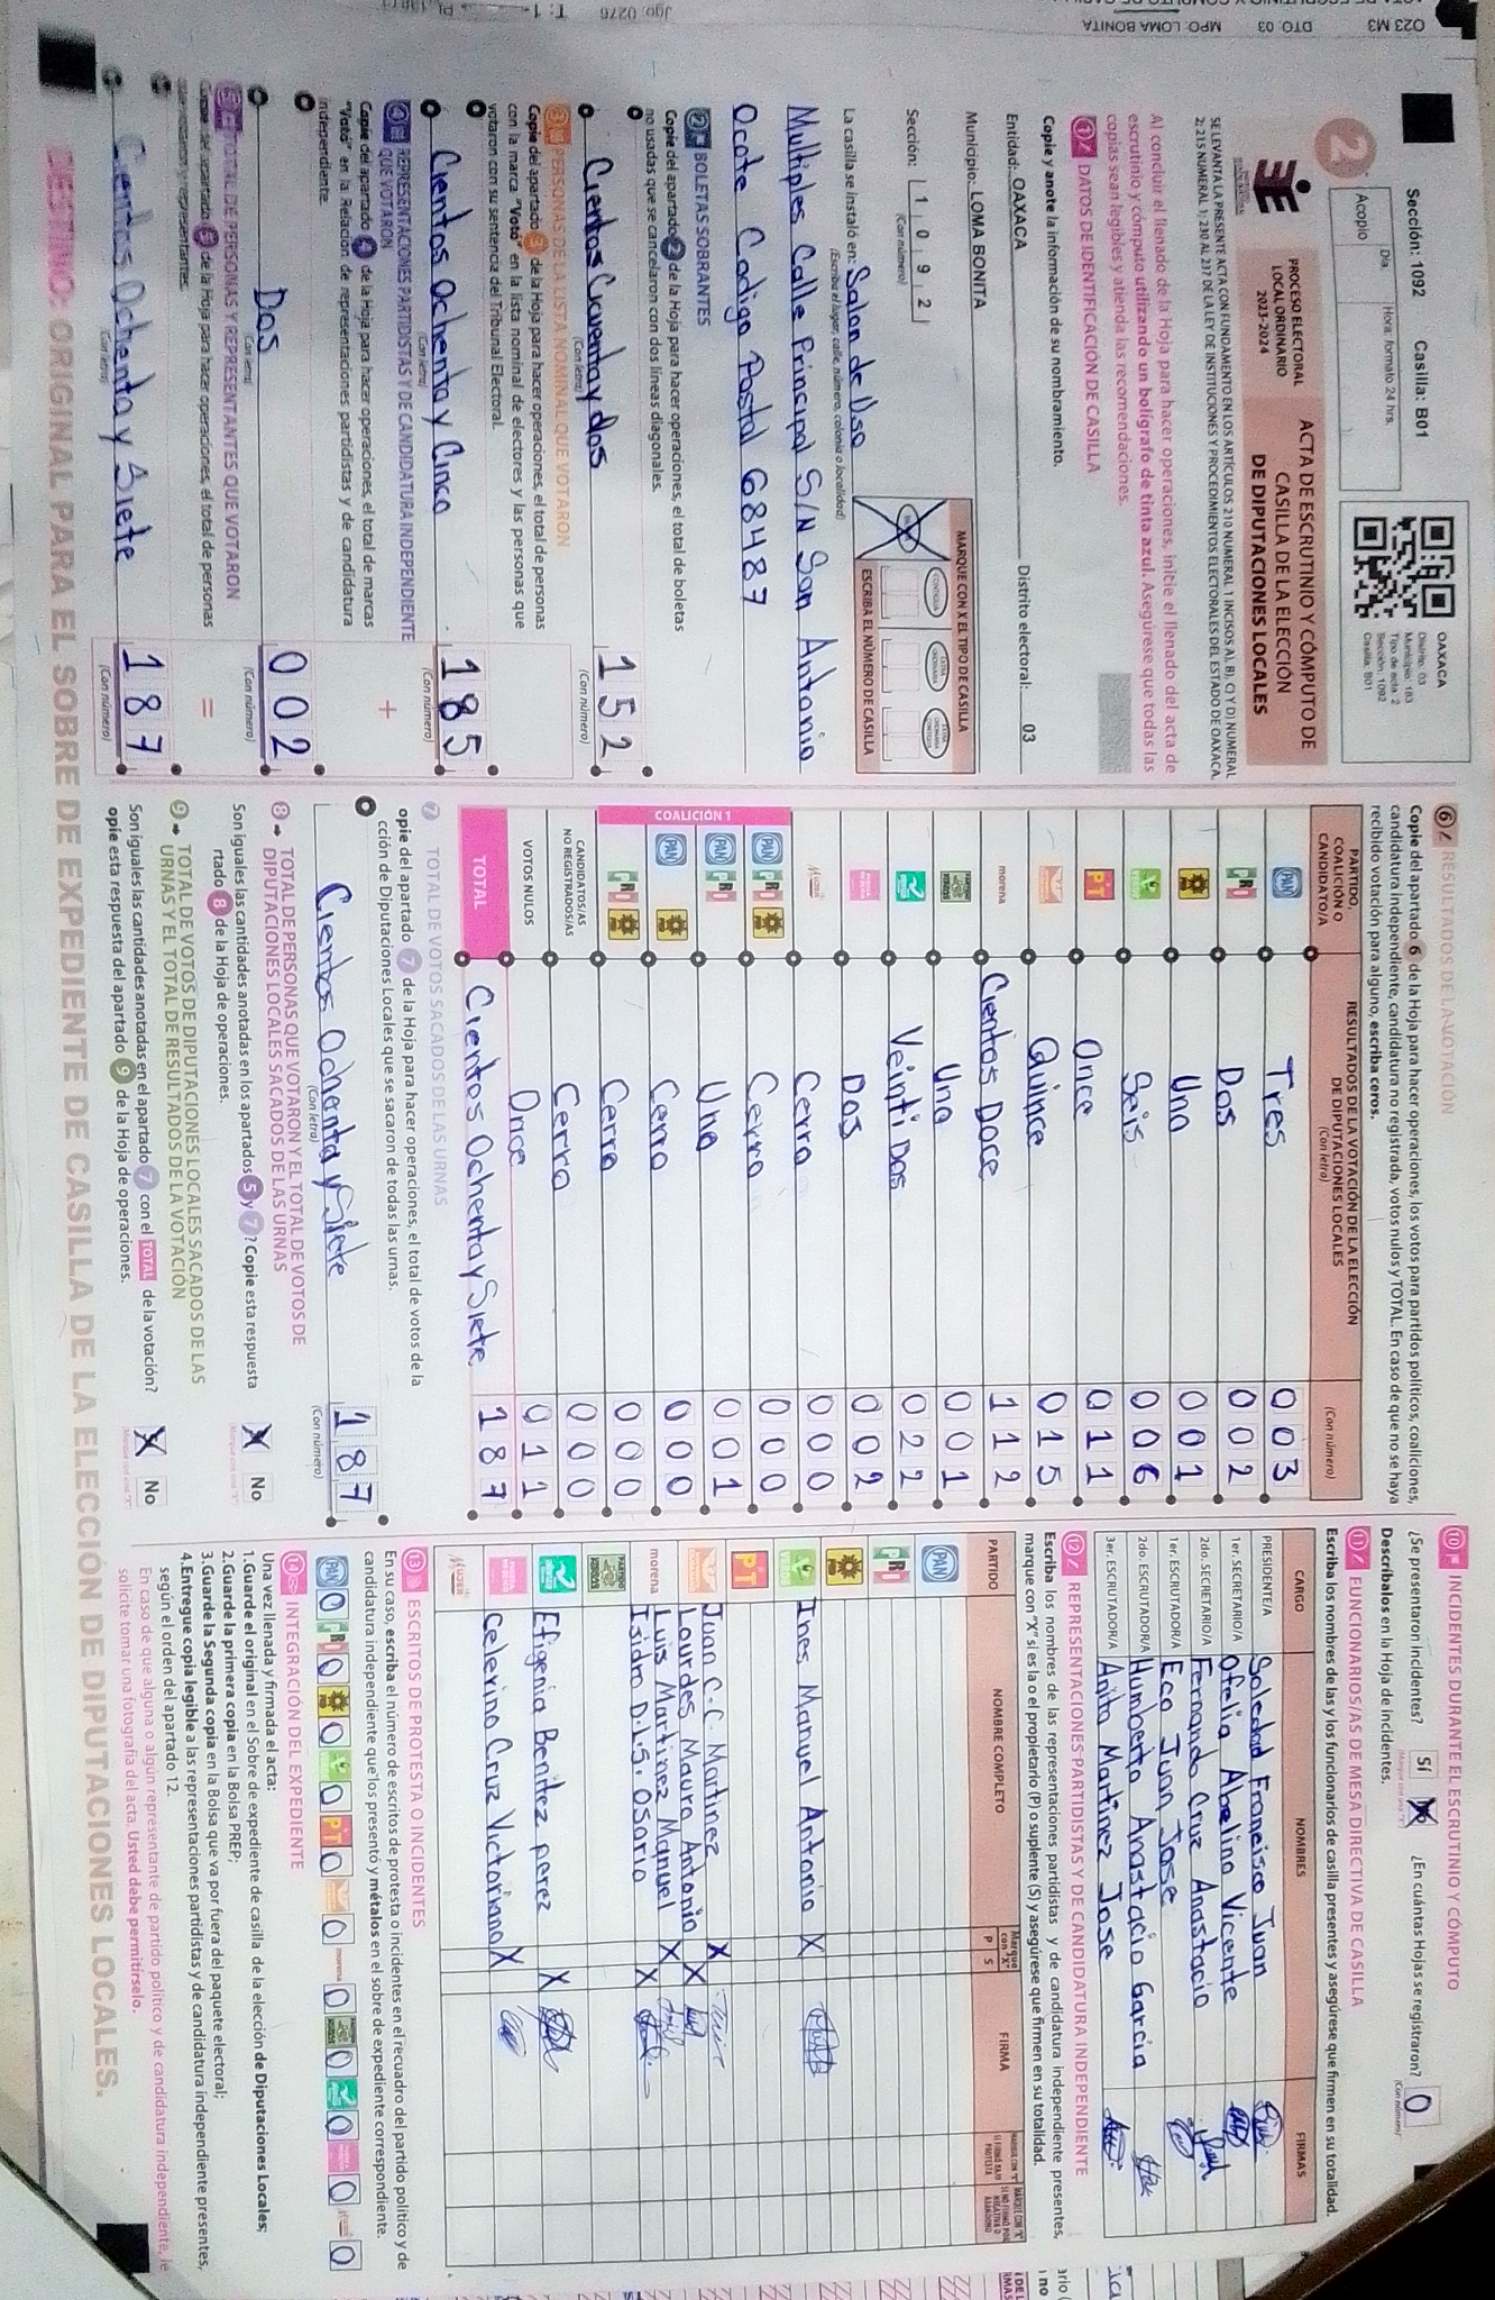 Sección: 1092 Casilla: B01
2
Acopio
Día
Hora: formato 24 hrs.
OAXACA
Distrito: 03
Municipio: 183
Tipo de acta: 2
Sección: 1092
Casilla: B01
PROCESO ELECTORAL
LOCAL ORDINARIO
2023-2024
ACTA DE ESCRUTINIO Y CÓMPUTO DE
CASILLA DE LA ELECCIÓN
DE DIPUTACIONES LOCALES
SE LEVANTA LA PRESENTE ACTA CON FUNDAMENTO EN LOS ARTÍCULOS 210 NUMERAL 1 INCISOS A), B), C) Y D) NUMERAL
2; 215 NUMERAL 1; 230 AL 237 DE LA LEY DE INSTITUCIONES Y PROCEDIMIENTOS ELECTORALES DEL ESTADO DE OAXACA.
Al concluir el llenado de la Hoja para hacer operaciones, inicie el llenado del acta de
escrutinio y cómputo utilizando un bolígrafo de tinta azul. Asegúrese que todas las
copias sean legibles y atienda las recomendaciones.
1 DATOS DE IDENTIFICACIÓN DE CASILLA
Copie y anote la información de su nombramiento.
Entidad: OAXACA Distrito electoral: 03
Municipio: LOMA BONITA
Sección: 1 0 9 2
(Con número)
MARQUE CON X EL TIPO DE CASILLA
ESCRIBA EL NÚMERO DE CASILLA
La casilla se instaló en: Salon de Uso
(Escriba el lugar, calle, número, colonia o localidad)
Multiples Calle Principal S/N San Antonio
Ocote Codigo Postal 68487
2 BOLETAS SOBRANTES
Copie del apartado 2 de la Hoja para hacer operaciones, el total de boletas
no usadas que se cancelaron con dos líneas diagonales.
Cientos Cicuenta y dos 1 5 2
(Con letra) (Con número)
3 PERSONAS DE LA LISTA NOMINAL QUE VOTARON
Copie del apartado 3 de la Hoja para hacer operaciones, el total de personas
con la marca "Votó" en la lista nominal de electores y las personas que
votaron con su sentencia del Tribunal Electoral.
Cientos Ochenta y Cinco 1 8 5
(Con letra) (Con número)
4 REPRESENTACIONES PARTIDISTAS Y DE CANDIDATURA INDEPENDIENTE
QUE VOTARON
Copie del apartado 4 de la Hoja para hacer operaciones, el total de marcas
"Votó" en la Relación de representaciones partidistas y de candidatura
independiente.
+
Dos 0 0 2
(Con letra) (Con número)
5 TOTAL DE PERSONAS Y REPRESENTANTES QUE VOTARON
Copie del apartado 5 de la Hoja para hacer operaciones, el total de personas
que votaron y representantes.
=
Cientos Ochenta y Siete 1 8 7
(Con letra) (Con número)
6 RESULTADOS DE LA VOTACIÓN
Copie del apartado 6 de la Hoja para hacer operaciones, los votos para partidos políticos, coaliciones,
candidatura independiente, candidatura no registrada, votos nulos y TOTAL. En caso de que no se haya
recibido votación para alguno, escriba ceros.
PARTIDO,
COALICIÓN O
CANDIDATO/A
RESULTADOS DE LA VOTACIÓN DE LA ELECCIÓN
DE DIPUTACIONES LOCALES
(Con letra)
(Con número)
PAN Tres 0 0 3
PRI Dos 0 0 2
PRD Uno 0 0 1
VERDE Seis 0 0 6
PT Once 0 1 1
Quince 0 1 5
morena Cientos Doce 1 1 2
Uno 0 0 1
Veinti Dos 0 2 2
Dos 0 0 2
MUJER Cerro 0 0 0
COALICIÓN 1
PAN PRI PRD Cerro 0 0 0
PAN PRI Uno 0 0 1
PAN PRD Cerro 0 0 0
PRI PRD Cerro 0 0 0
CANDIDATOS/AS
NO REGISTRADOS/AS
Cerro 0 0 0
VOTOS NULOS Once 0 1 1
TOTAL Cientos Ochenta y Siete 1 8 7
7 TOTAL DE VOTOS SACADOS DE LAS URNAS
opie del apartado 7 de la Hoja para hacer operaciones, el total de votos de la
cción de Diputaciones Locales que se sacaron de todas las urnas.
Cientos Ochenta y Siete 1 8 7
(Con letra) (Con número)
8 TOTAL DE PERSONAS QUE VOTARON Y EL TOTAL DE VOTOS DE
DIPUTACIONES LOCALES SACADOS DE LAS URNAS
Son iguales las cantidades anotadas en los apartados 5 y 7? Copie esta respuesta
rtado 8 de la Hoja de operaciones.
X No
9 TOTAL DE VOTOS DE DIPUTACIONES LOCALES SACADOS DE LAS
URNAS Y EL TOTAL DE RESULTADOS DE LA VOTACIÓN
Son iguales las cantidades anotadas en el apartado 7 con el TOTAL de la votación?
opie esta respuesta del apartado 9 de la Hoja de operaciones.
X No
10 INCIDENTES DURANTE EL ESCRUTINIO Y CÓMPUTO
¿Se presentaron incidentes? Sí X ¿En cuántas Hojas se registraron? 0
(Con número)
Descríbalos en la Hoja de incidentes.
11 FUNCIONARIOS/AS DE MESA DIRECTIVA DE CASILLA
Escriba los nombres de las y los funcionarios de casilla presentes y asegúrese que firmen en su totalidad.
CARGO NOMBRES FIRMAS
PRESIDENTE/A Soledad Francisco Juan
1er. SECRETARIO/A Ofelia Abelino Vicente
2do. SECRETARIO/A Fernando Cruz Anastacio
1er. ESCRUTADOR/A Eco Juan Jose
2do. ESCRUTADOR/A Humberto Anastacio Garcia
3er. ESCRUTADOR/A Anita Martinez Jose
12 REPRESENTACIONES PARTIDISTAS Y DE CANDIDATURA INDEPENDIENTE
Escriba los nombres de las representaciones partidistas y de candidatura independiente presentes,
marque con "X" si es la o el propietario (P) o suplente (S) y asegúrese que firmen en su totalidad.
PARTIDO NOMBRE COMPLETO Marque con "X" P S FIRMA
PAN
PRI
PRD
VERDE Ines Manuel Antonio X
PT
Juan C.C. Martinez X
Lourdes Mauro Antonio X
morena Luis Martinez Manuel X
Isidro D.L.S. Osorio X
Efigenia Benitez perez X
Celerino Cruz Victoriano X
MUJER
13 ESCRITOS DE PROTESTA O INCIDENTES
En su caso, escriba el número de escritos de protesta o incidentes en el recuadro del partido político y de
candidatura independiente que los presentó y métalos en el sobre de expediente correspondiente.
PAN 0 PRI 0 PRD 0 VERDE 0 PT 0 0 morena 0 0 0 0 0
14 INTEGRACIÓN DEL EXPEDIENTE
Una vez llenada y firmada el acta:
1.Guarde el original en el Sobre de expediente de casilla de la elección de Diputaciones Locales;
2.Guarde la primera copia en la Bolsa PREP;
3.Guarde la Segunda copia en la Bolsa que va por fuera del paquete electoral;
4.Entregue copia legible a las representaciones partidistas y de candidatura independiente presentes,
según el orden del apartado 12.
En caso de que alguna o algún representante de partido político y de candidatura independiente, le
solicite tomar una fotografía del acta. Usted debe permitírselo.
DESTINO: ORIGINAL PARA EL SOBRE DE EXPEDIENTE DE CASILLA DE LA ELECCIÓN DE DIPUTACIONES LOCALES.
023 M3
DTO: 03
MPO: LOMA BONITA
Jgo: 0276